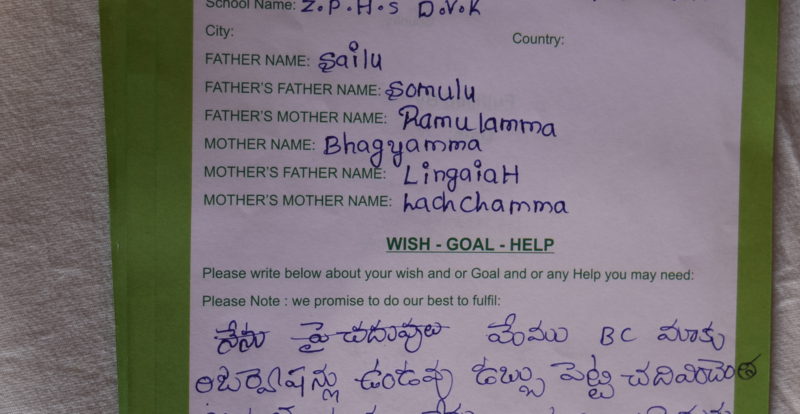 School Name: Z.P.H.S D.V.K
City:
Country:
FATHER NAME: Sailu
FATHER'S FATHER NAME: Somulu
FATHER'S MOTHER NAME: Ramulamma
MOTHER NAME: Bhagyamma
MOTHER'S FATHER NAME: LingaiaH
MOTHER'S MOTHER NAME: Lachchamma
WISH - GOAL - HELP
Please write below about your wish and or Goal and or any Help you may need:
Please Note : we promise to do our best to fulfil:
నేను పై చదువులు మేము BC మాకు
రిజర్వేషన్లు ఉండవు డబ్బు పెట్టి చదివించెంత